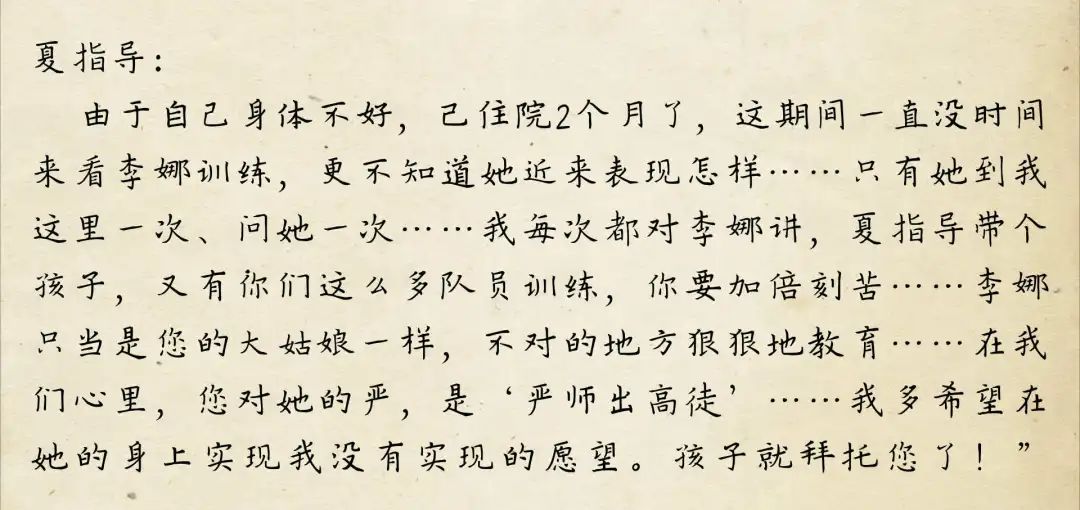 夏指导：
由于自己身体不好，已住院2个月了，这期间一直没时间
来看李娜训练，更不知道她近来表现怎样……只有她到我
这里一次、问她一次……我每次都对李娜讲，夏指导带个
孩子，又有你们这么多队员训练，你要加倍刻苦……李娜
只当是您的大姑娘一样，不对的地方狠狠地教育……在我
们心里，您对她的严，是‘严师出高徒’……我多希望在
她的身上实现我没有实现的愿望。孩子就拜托您了！”